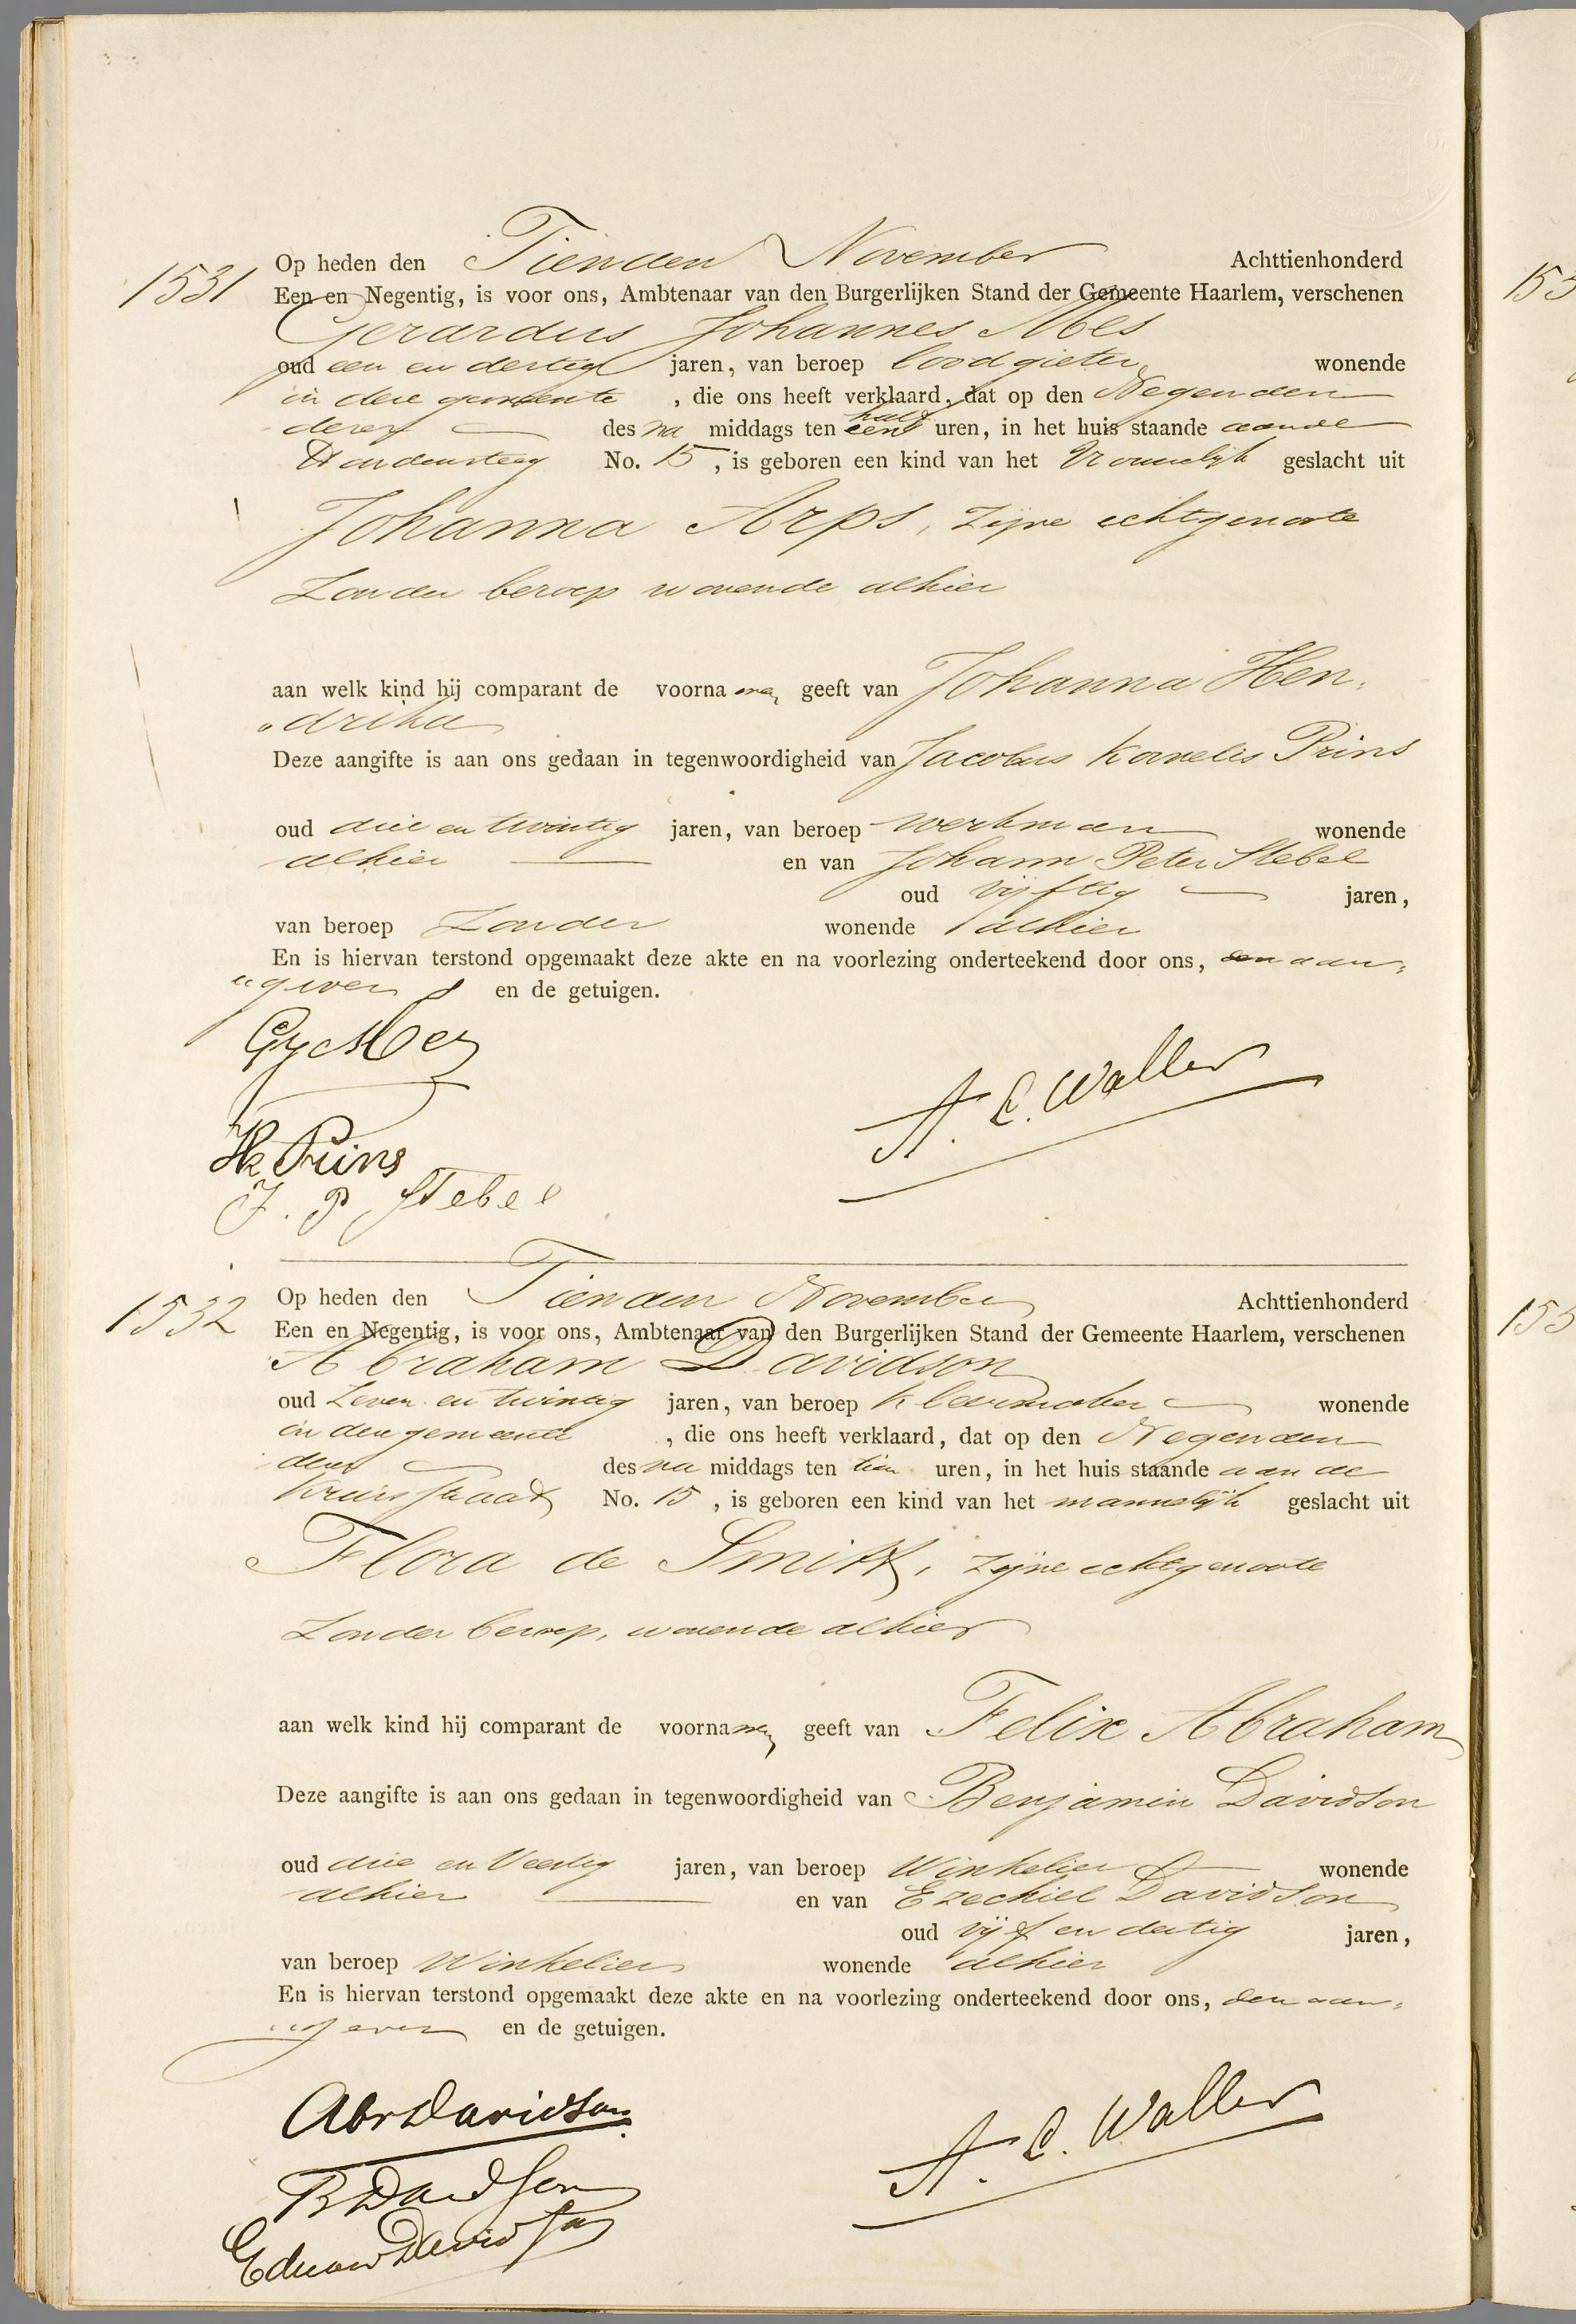 1531
Op heden den Tienden November Achttienhonderd
Een en Negentig, is voor ons, Ambtenaar van den Burgerlijken Stand der Gemeente Haarlem, verschenen
Gerardus Johannes Mes
oud een en dertig jaren, van beroep loodgieter wonende
in deze gemeente , die ons heeft verklaard, dat op den Negenden
dezer des na middags ten half een uren, in het huis staande aan de
No. 15, is geboren een kind van het Vrouwelijk geslacht uit
Johanna Arps, zijne echtgenoote
Zonder beroep wonende alhier
aan welk kind hij comparant de voornamen geeft van Johanna Hen-
„drika
Deze aangifte is aan ons gedaan in tegenwoordigheid van Jacobus Kornelis Prins
oud drie en twintig jaren, van beroep werkman wonende
alhier en van Johann Peter Stebel
oud vijftig jaren,
van beroep Zonder wonende alhier
En is hiervan terstond opgemaakt deze akte en na voorlezing onderteekend door ons, den aan-
„gever en de getuigen.
GJ Mes
A. E. Waller
JK Prins
J. P Stebel
1532
Op heden den Tienden November Achttienhonderd
Een en Negentig, is voor ons, Ambtenaar van den Burgerlijken Stand der Gemeente Haarlem, verschenen
Abraham Davidson
oud Zeven en twintig jaren, van beroep kleermaker wonende
in deze gemeente , die ons heeft verklaard, dat op den Negenden
dezer des na middags ten tien uren, in het huis staande aan de
Kruisstraat No. 15, is geboren een kind van het mannelijk geslacht uit
Flora de Smitt, zijne echtgenoote
Zonder beroep, wonende alhier
aan welk kind hij comparant de voornamen geeft van Felix Abraham
Deze aangifte is aan ons gedaan in tegenwoordigheid van Benjamin Davidson
oud drie en Veertig jaren, van beroep Winkelier wonende
alhier en van Ezechiel Davidson
oud vijf en dertig jaren,
van beroep Winkelier wonende alhier
En is hiervan terstond opgemaakt deze akte en na voorlezing onderteekend door ons, den aan-
„gever en de getuigen.
Abr Davidson
A. E. Waller
B Davidson
Eduard Davidson
153
153